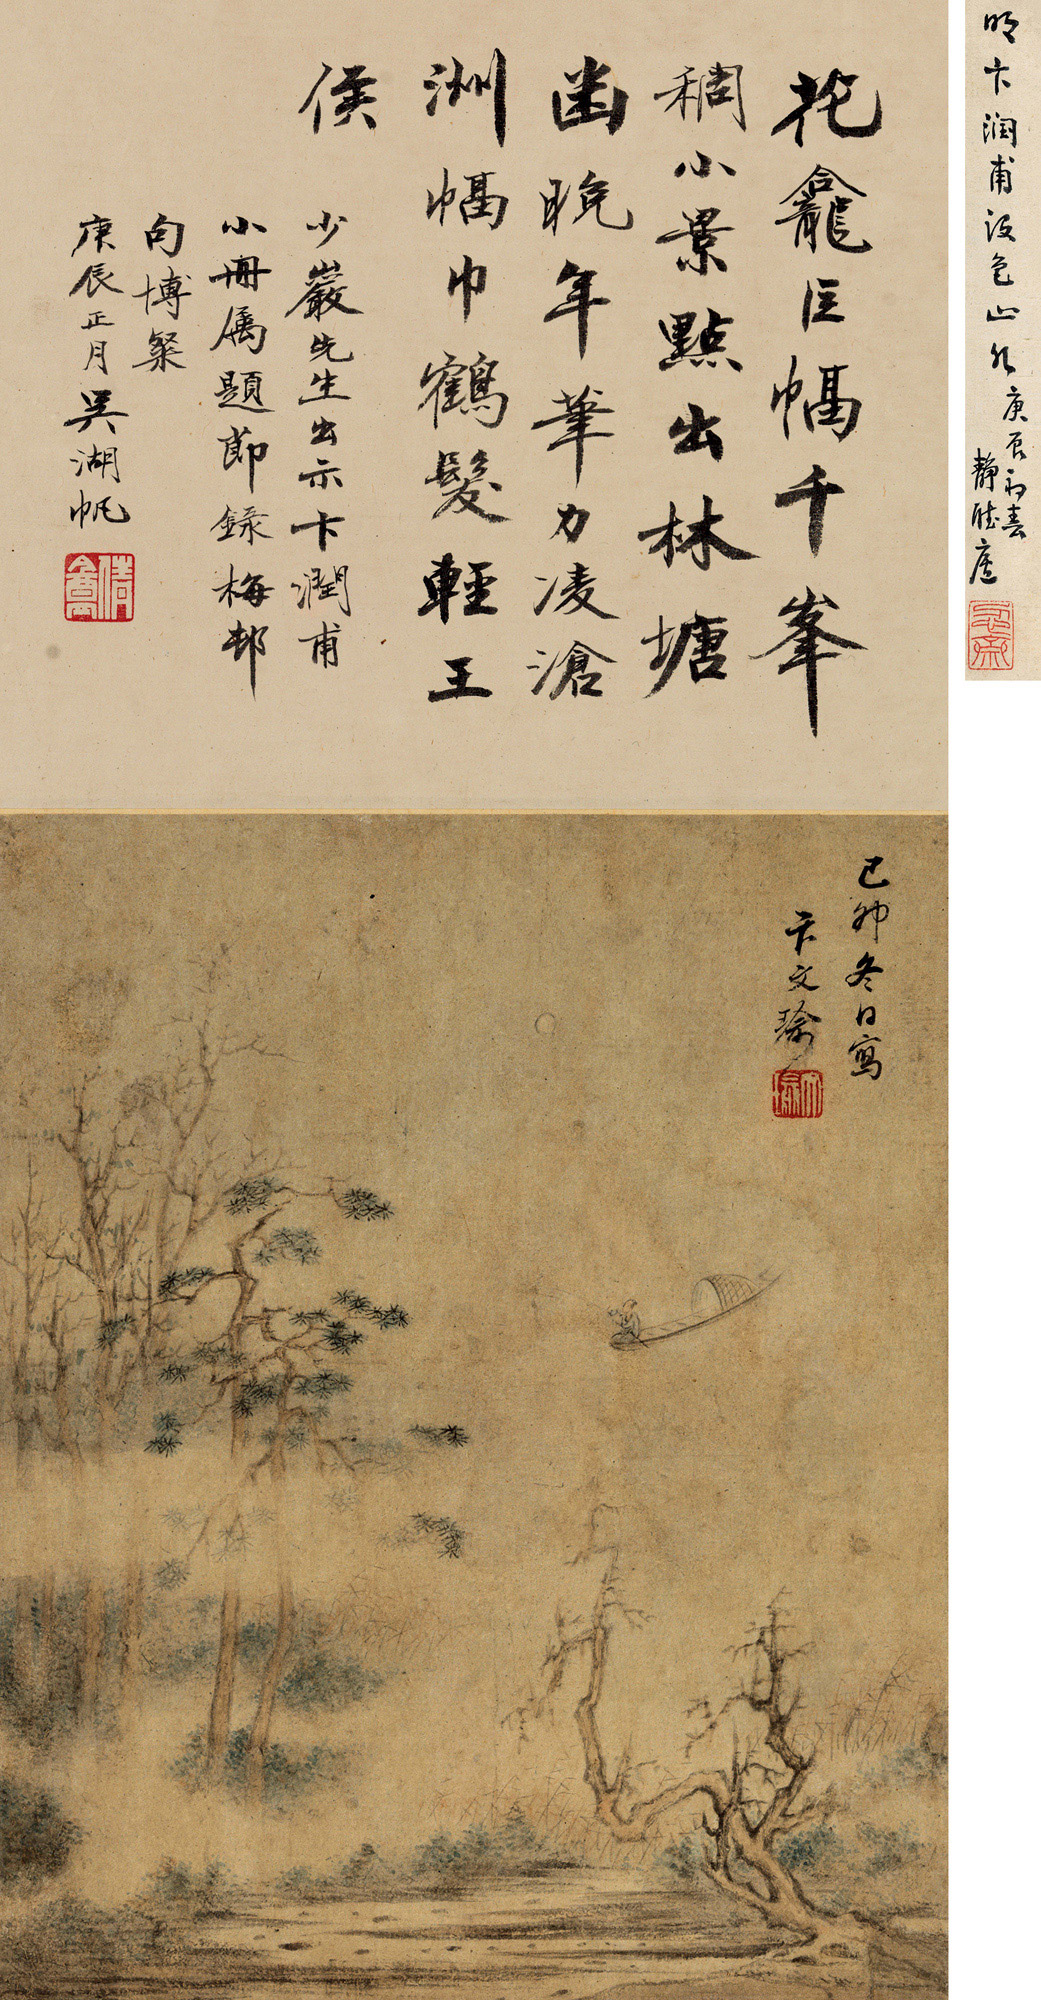 明卞潤甫設色山水
庚辰初春
花龕巨幅千峯
稠小景點出林塘
幽晚年筆力凌滄
洲幅巾鶴髮輕王
侯
少巖先生出示卞潤甫
小冊属題節録梅邨
句博粲
庚辰正月吳湖帆
倩盦
己卯冬日寫
卞文瑜
文瑜